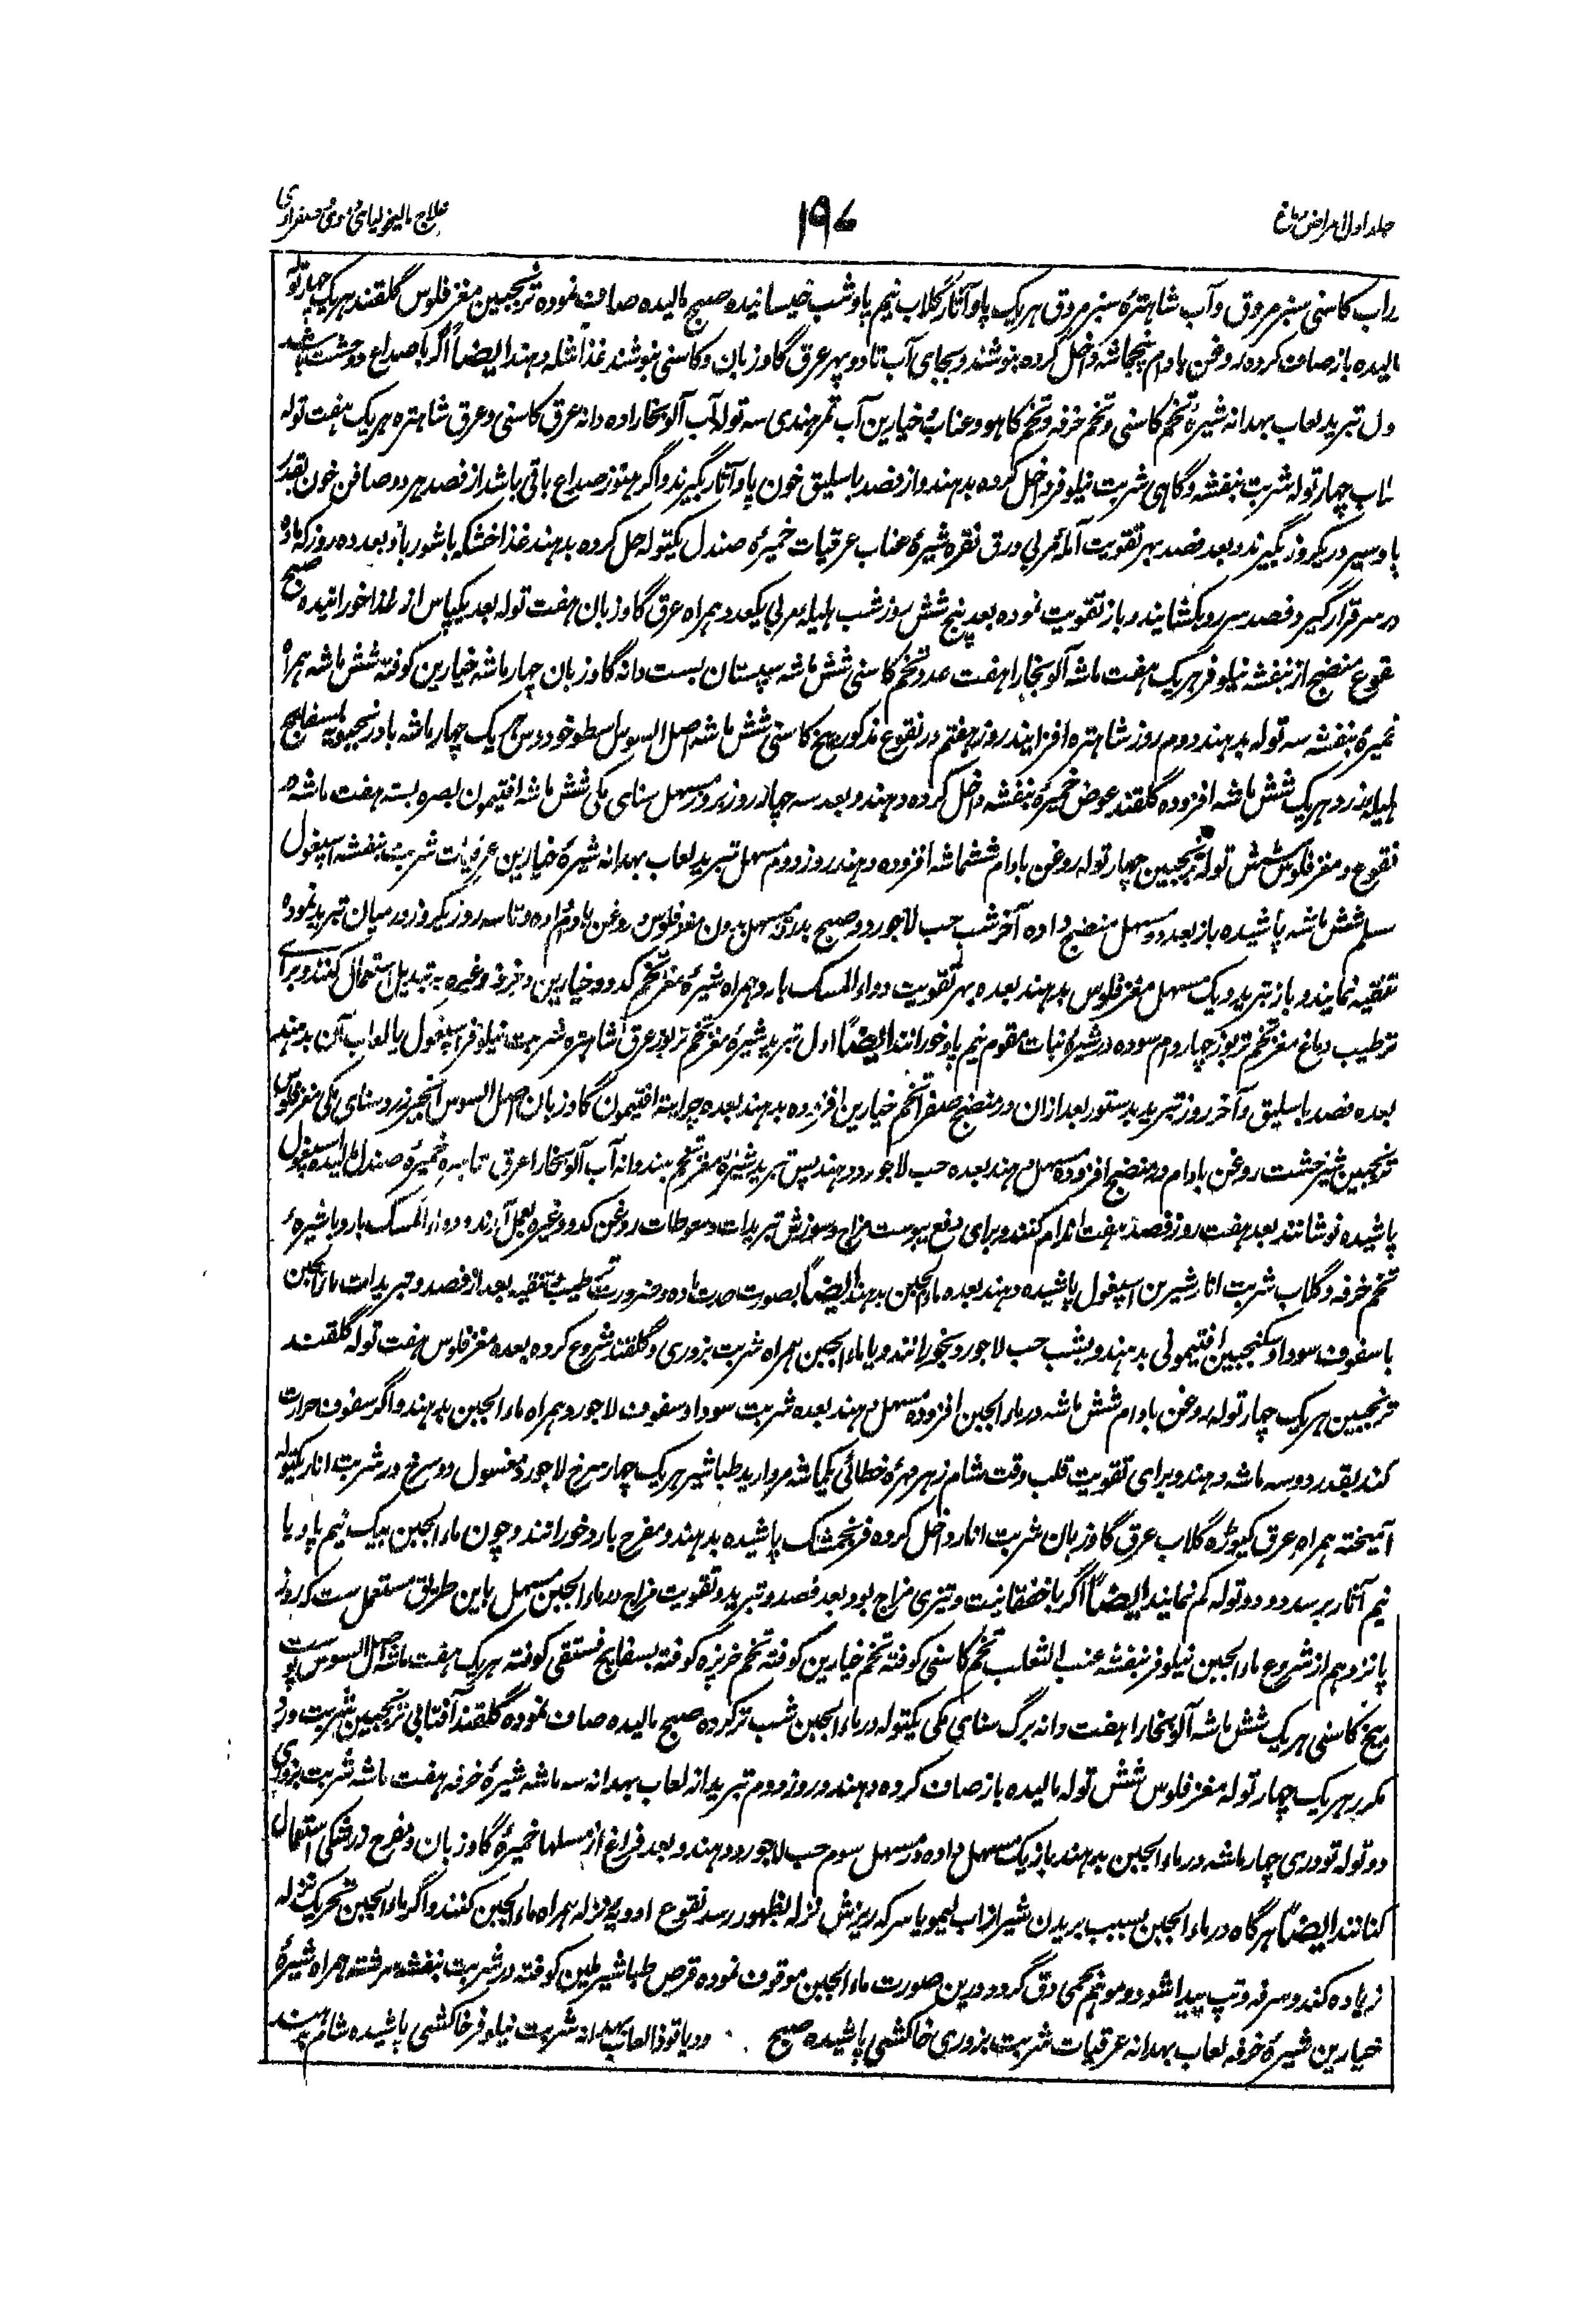 جلد اول امراض دماغ
۱۹۷
علاج مالیخولیای دموی و صفراوی
در آب کاسنی سبز مروق و آب شاهترهٔ سبز مروق هریک پاو آثار گلاب نیم پاو شب خیسانیده صبح مالیده صاف نموده ترنجبین مغز فلوس گلقند هریک چهار توله
مالیده باز صاف کرده روغن بادام پنجماشه داخل کرده بنوشند و بجای آب تا دو پهر عرق گاوزبان و کاسنی بنوشند غذا شله دهند ایضاً اگر با صداع و وحشت باشد
اول تبرید لعاب بهدانه شیرهٔ تخم کاسنی و تخم خرفه و تخم کاهو و عناب و خیارین آب تمر هندی سه توله آب آلو بخارا ده دانه عرق کاسنی و عرق شاهتره هریک هفت توله
گلاب چهار توله شربت بنفشه و گاهی شربت نیلوفر داخل کرده بدهند و از فصد باسلیق خون پاو آثار گیرند و اگر هنوز صداع باقی باشد از فصد هر دو صافن خون بقدر
پاو سیر در یکروز بگیرند و بعد فصد بهر تقویت آملهٔ مربی ورق نقره شیرهٔ عناب عرقیات خمیرهٔ صندل یکتوله حل کرده بدهند غذا خشکه با شوربا و بعد ده روز که ماده
در سر قرار گیرد فصد سررو بکشایند و باز تقویت نموده بعد پنج شش روز شب هلیلهٔ مربی یکعدد همراه عرق گاوزبان هفت توله بعد یکپاس از غذا خورانیده صبح
نقوع منضج از بنفشه نیلوفر هریک هفت ماشه آلو بخارا هفت عدد تخم کاسنی شش ماشه سپستان بست دانه گاوزبان چهار ماشه خیارین کوفته شش ماشه همراه
خمیرهٔ بنفشه سه توله بدهند دوم روز شاهتره افزایند روز هفتم در نقوع مذکور بیخ کاسنی شش ماشه اصل السوس اسطوخودوس هریک چهار ماشه بادرنجبویه بسفایج
هلیله زرد هریک شش ماشه افزوده گلقند عوض خمیرهٔ بنفشه داخل کرده دهند و بعد سه چهار روز بروز مسهل سنای مکی شش ماشه افتیمون بصره بسته هفت ماشه در
نقوع و مغز فلوس شش توله ترنجبین چهار توله روغن بادام ششماشه افزوده دهند روز دوم مسهل تبرید لعاب بهدانه شیرهٔ خیارین عرقیات شربت بنفشه اسپغول
مسلم شش ماشه پاشیده باز بعد دو مسهل منضج داده آخر شب حب لاجورد و صبح بدرقه مسهل بدون مغز فلوس و روغن بادام داده و تا سه روز یکروز درمیان تبرید نموده
تنقیه نمایند و باز تبرید و یک مسهل مغز فلوس بدهند بعده بهر تقویت دواء المسک بارد همراه شیرهٔ مغز تخم کدو و خیارین و خرفه وغیره به تبدیل استعمال کنند و برای
ترطیب دماغ مغز تخم تربوز چهار دام سوده در شیرهٔ نبات مقوم نیم پاو خورانند ایضاً اول تبرید شیرهٔ مغز تخم تربوز عرق شاهتره شربت نیلوفر اسپغول یا لعاب آن بدهند
بعده فصد باسلیق و آخر روز تبرید بدستور بعد ازان در منضج صفرا تخم خیارین افزوده بدهند بعده چرایته افتیمون گاوزبان اصل السوس انجیر زرد سنای مکی مغز فلوس
ترنجبین شیرخشت روغن بادام در منضج افزوده مسهل دهند بعده حب لاجورد دهند پس تبرید شیرهٔ مغز تخم هندوانه آب آلو بخارا عرق خمیرهٔ صندل مالیده اسپغول
پاشیده نوشانند بعد هفت روز فصد هفت اندام کنند و برای دفع یبوست مزاج و سوزش تبریدات و سعوطات روغن کدو وغیره بعمل آرند و دواء المسک بارد با شیرهٔ
تخم خرفه و گلاب شربت انار شیرین اسپغول پاشیده دهند بعده ماء الجبن بدهند ایضاً بصورت حدت ماده و ضرورت ترطیب تنقیه بعد از فصد و تبریدات ماء الجبن
با سفوف سودا و سکنجبین افتیمونی بدهند و بشب حب لاجورد بخورانند و یا ماء الجبن همراه شربت بزوری و گلقند شروع کرده بعده مغز فلوس هفت توله گلقند
ترنجبین هریک چهار توله روغن بادام شش ماشه در ماء الجبن افزوده مسهل دهند بعده شربت سودا و سفوف لاجورد همراه ماء الجبن بدهند و اگر سفوف حرارت
کند بقدر دو سه ماشه دهند و برای تقویت قلب وقت شام زهر مهرهٔ خطائی یکماشه مروارید طباشیر هریک چهار سرخ لاجورد مغسول دو سرخ در شربت انار یکتوله
آمیخته همراه عرق کیوڑه گلاب عرق گاوزبان شربت انار داخل کرده فرنجمشک پاشیده بدهند و مفرح بارد خورانند و چون ماء الجبن بیک نیم پاو یا
نیم آثار برسد دو دو توله کم نمایند ایضاً اگر با خفقانیت و تیزی مزاج بود بعد فصد و تبرید و تقویت مزاج در ماء الجبن مسهل باین طریق مستعمل ست که روز
پانزدهم از شروع ماء الجبن نیلوفر بنفشه عنب الثعلب تخم کاسنی کوفته تخم خیارین کوفته تخم خرپزه کوفته بسفایج فستقی کوفته هریک هفت ماشه اصل السوس پوست
بیخ کاسنی هریک شش ماشه آلو بخارا هفت دانه برگ سنای مکی یکتوله در ماء الجبن شب تر کرده صبح مالیده صاف نموده گلقند آفتابی ترنجبین شربت ورد
مکرر هریک چهار توله مغز فلوس شش توله مالیده باز صاف کرده دهند و روز دوم تبرید از لعاب بهدانه سه ماشه شیرهٔ خرفه هفت ماشه شربت بزوری
دو توله تودری چهار ماشه در ماء الجبن بدهند باز یک مسهل داده در مسهل سوم حب لاجورد دهند و بعد فراغ از مسهلها خمیرهٔ گاوزبان و مفرح درشکی استعمال
کنانند ایضاً هرگاه در ماء الجبن بسبب بریدن شیر از آب لیمو یا سرکه ریزش نزله بظهور رسد نقوع ادویهٔ نزله همراه ماء الجبن کنند و اگر ماء الجبن تحریک نزله
زیاده کند و سرفه و تپ پیدا شود و موهم حمی دق گردد درین صورت ماء الجبن موقوف نموده قرص طباشیر ملین کوفته در شربت بنفشه سرشته همراه شیرهٔ
خیارین شیرهٔ خرفه لعاب بهدانه عرقیات شربت بزوری خاکشی پاشیده صبح و دیاقوذا لعاب بهدانه شربت نیلوفر خاکشی پاشیده شام بدهند